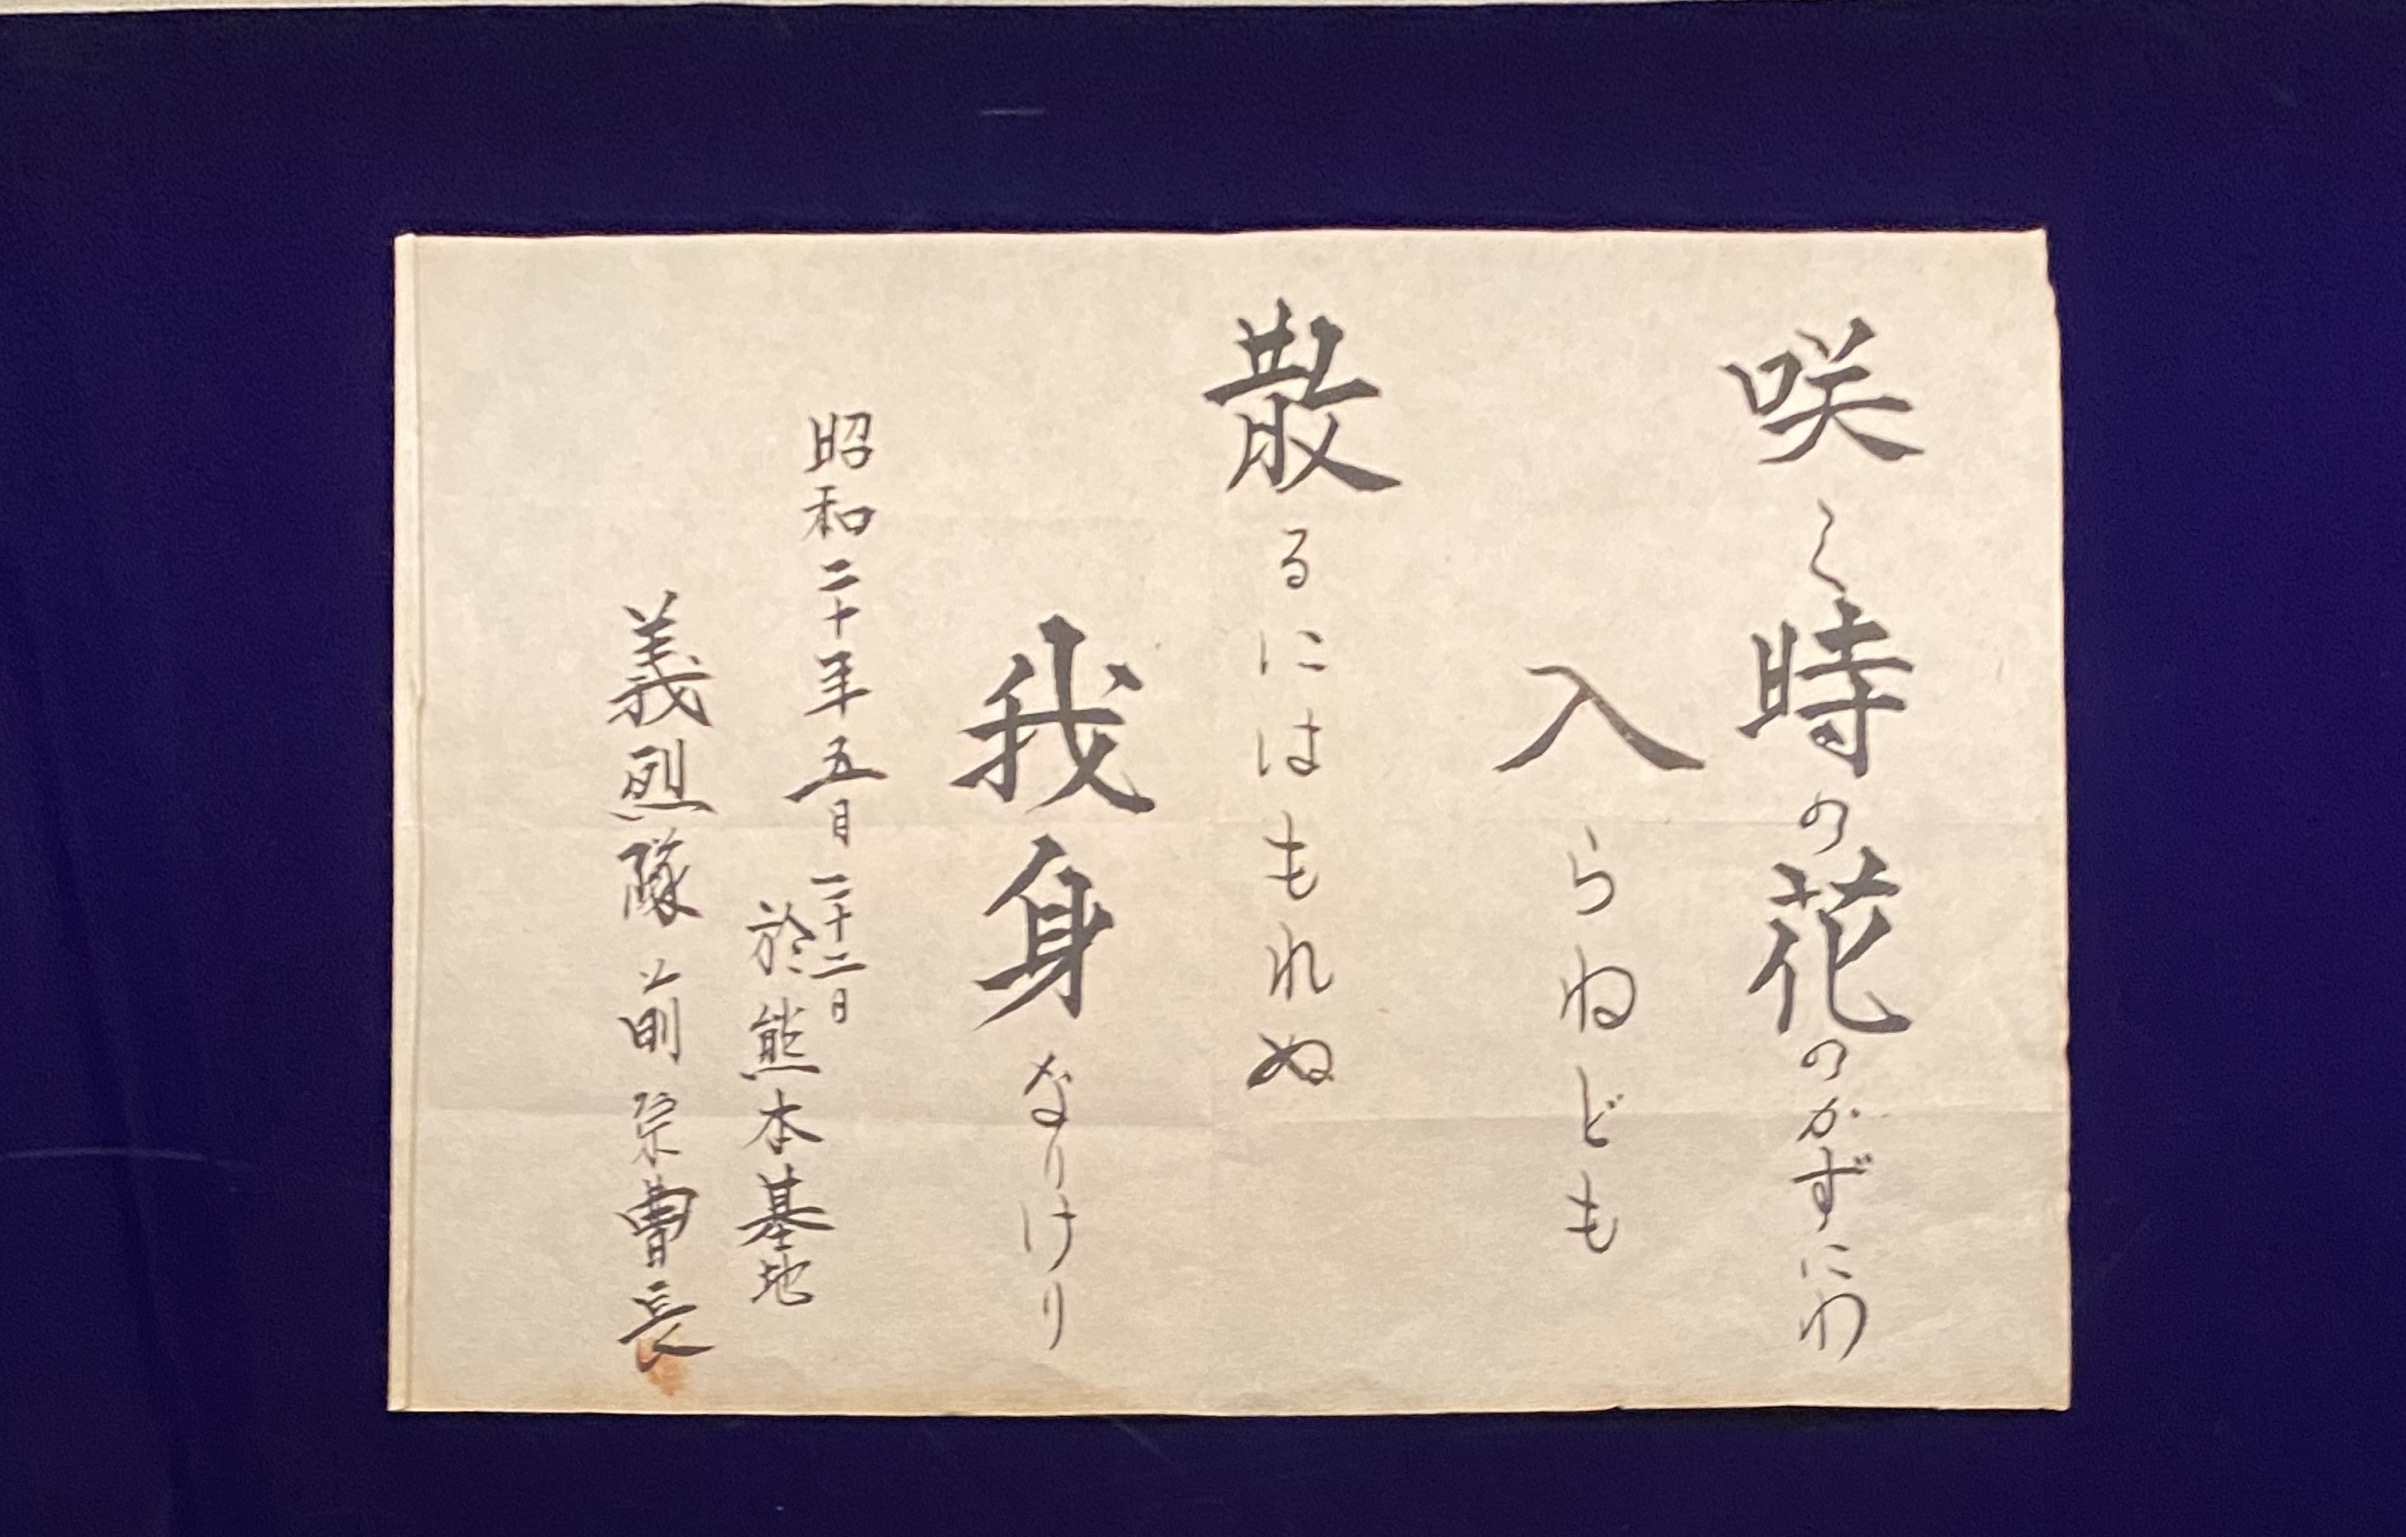 咲く時の花のかずにわ
入らねども
散るにはもれぬ
我身なりけり
昭和二十年五月二十二日
於熊本基地
義烈隊 前 曹長